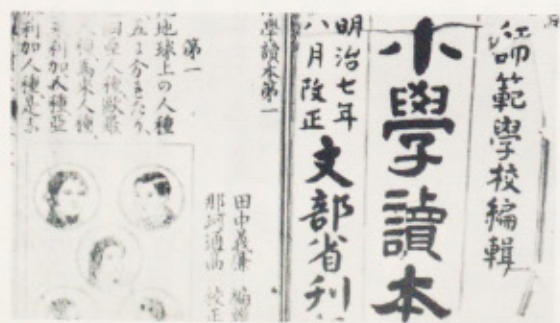 師範學校編輯
小學讀本
明治七年
八月改正
文部省刊
學讀本第一
田中義廉 編輯
那珂通高 校正
第一
地球上の人種
五に分きたり
細亞人種歐羅
人種馬来人種
米利加人種亞
利加人種是